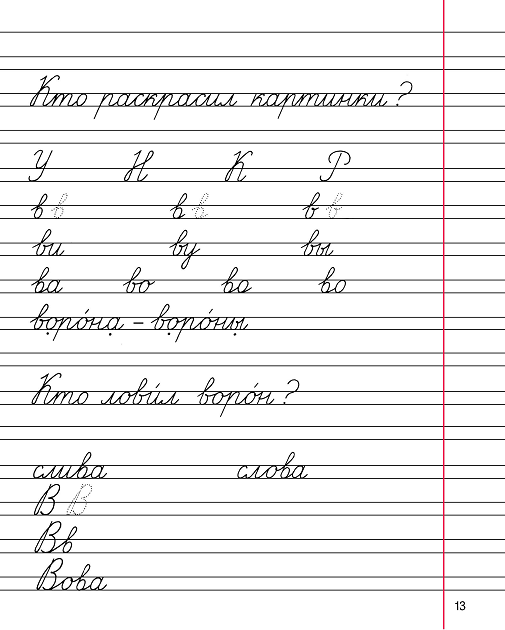 Кто раскрасил картинки?
У Н К Р
в в в в в в
ви ву вы
ва во ва во
воро́на – воро́ны
Кто лови́л воро́н?
слива слова
В В
Вв
Вова
13